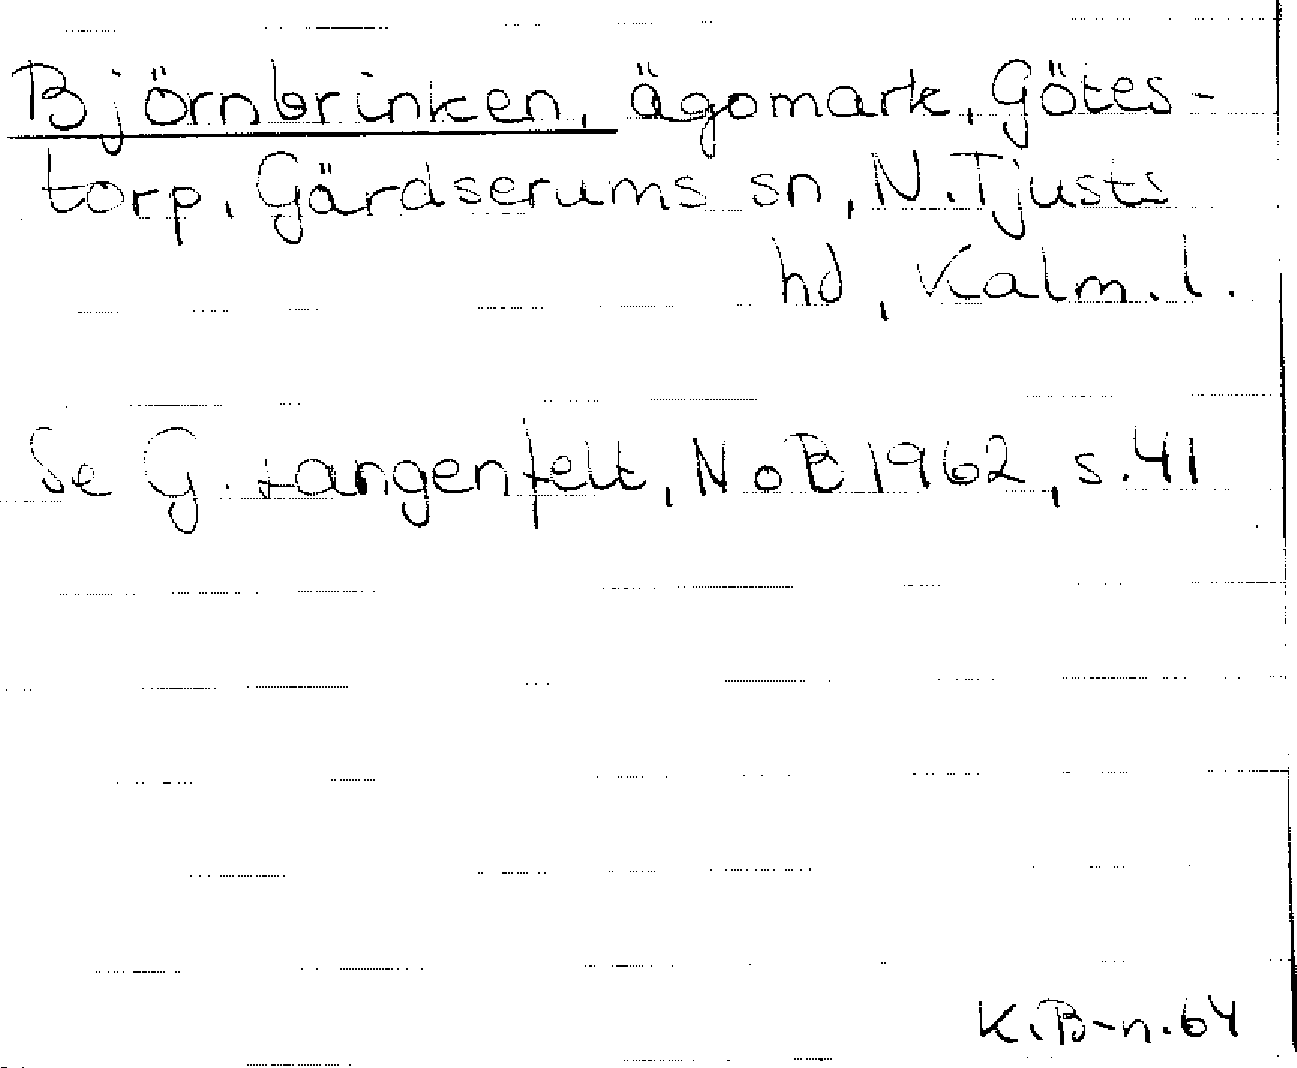 Björnbrinken, ägomark, Götes-
torp, Gärdserums sn, N. Tjusts
hd, Kalm. l.
Se G. Langenfelt, NoB 1962, s. 41
K. B-n. 64